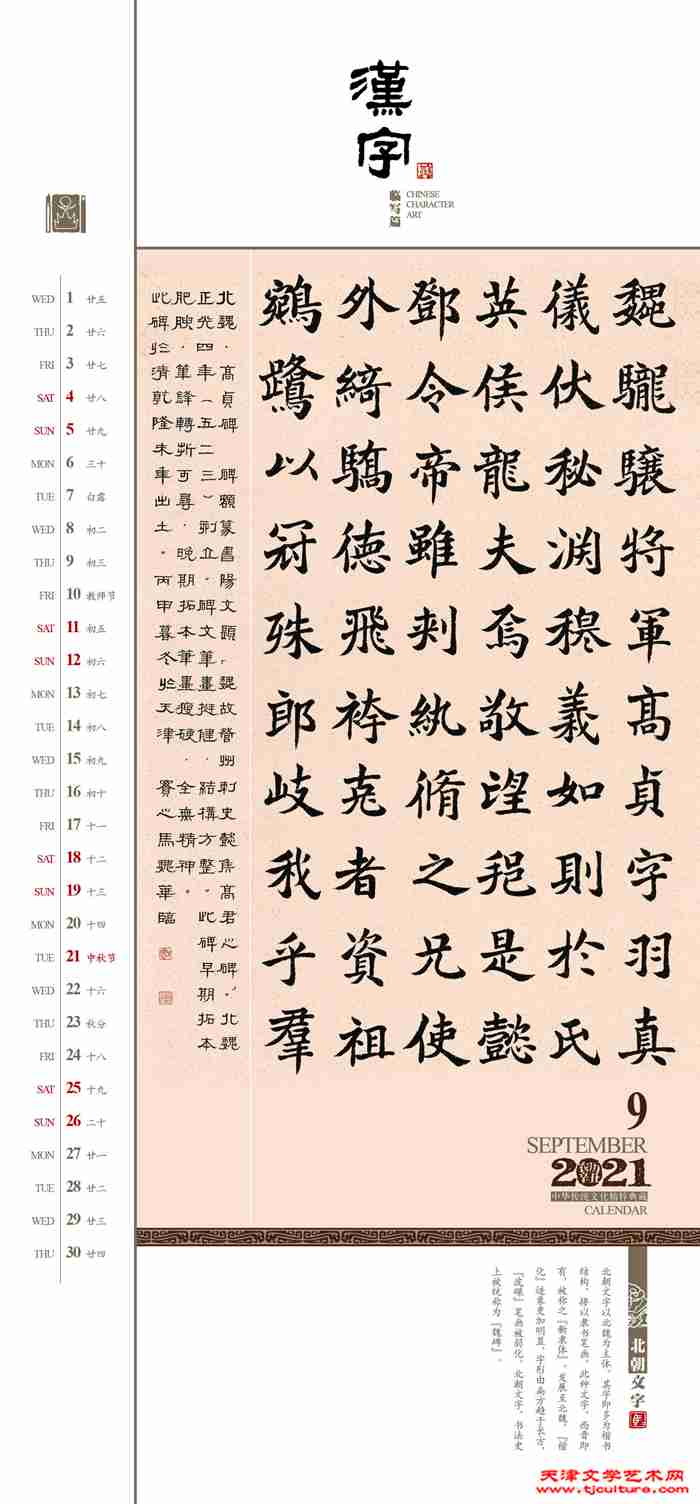 漢字
临写篇
CHINESE
CHARACTER
ART
WED 1 廿五
THU 2 廿六
FRI 3 廿七
SAT 4 廿八
SUN 5 廿九
MON 6 三十
TUE 7 白露
WED 8 初二
THU 9 初三
FRI 10 教师节
SAT 11 初五
SUN 12 初六
MON 13 初七
TUE 14 初八
WED 15 初九
THU 16 初十
FRI 17 十一
SAT 18 十二
SUN 19 十三
MON 20 十四
TUE 21 中秋节
WED 22 十六
THU 23 秋分
FRI 24 十八
SAT 25 十九
SUN 26 二十
MON 27 廿一
TUE 28 廿二
WED 29 廿三
THU 30 廿四
魏驤將軍高貞字羽真
儀伏秘渕穆義如則於氏
英侯龍夫焉敬望挹是懿
鄧令帝雖刺紈脩之兄使
外綺驕德飛袴克者資祖
鵷鷺以冠殊郎歧我乎羣
北魏·高貞碑·碑額篆書陽文題·魏故營州刺史懿侯高君之碑·北魏
正光四年（五二三）刻立·碑文筆畫挺健·結構方整·此碑早期拓本
肥腴·筆鋒轉折可尋·晚期拓本筆畫瘦硬·全無精神·
此碑於清乾隆末年出土·丙申暮冬於天津 心馬魏華臨
9
SEPTEMBER
2021
中华传统文化精粹典藏
CALENDAR
北朝文字
北朝文字以北魏为主体，其字即多为楷书
结构，接以隶书笔画，此种文字，西晋即
有，被称之『新隶体』。发展至北魏，『楷
化』进来更加明显，字形由扁方趋于长方，
『波磔』笔画被弱化，北朝文字，书法史
上被统称为『魏碑』。
天津文学艺术网
www.tjculture.com